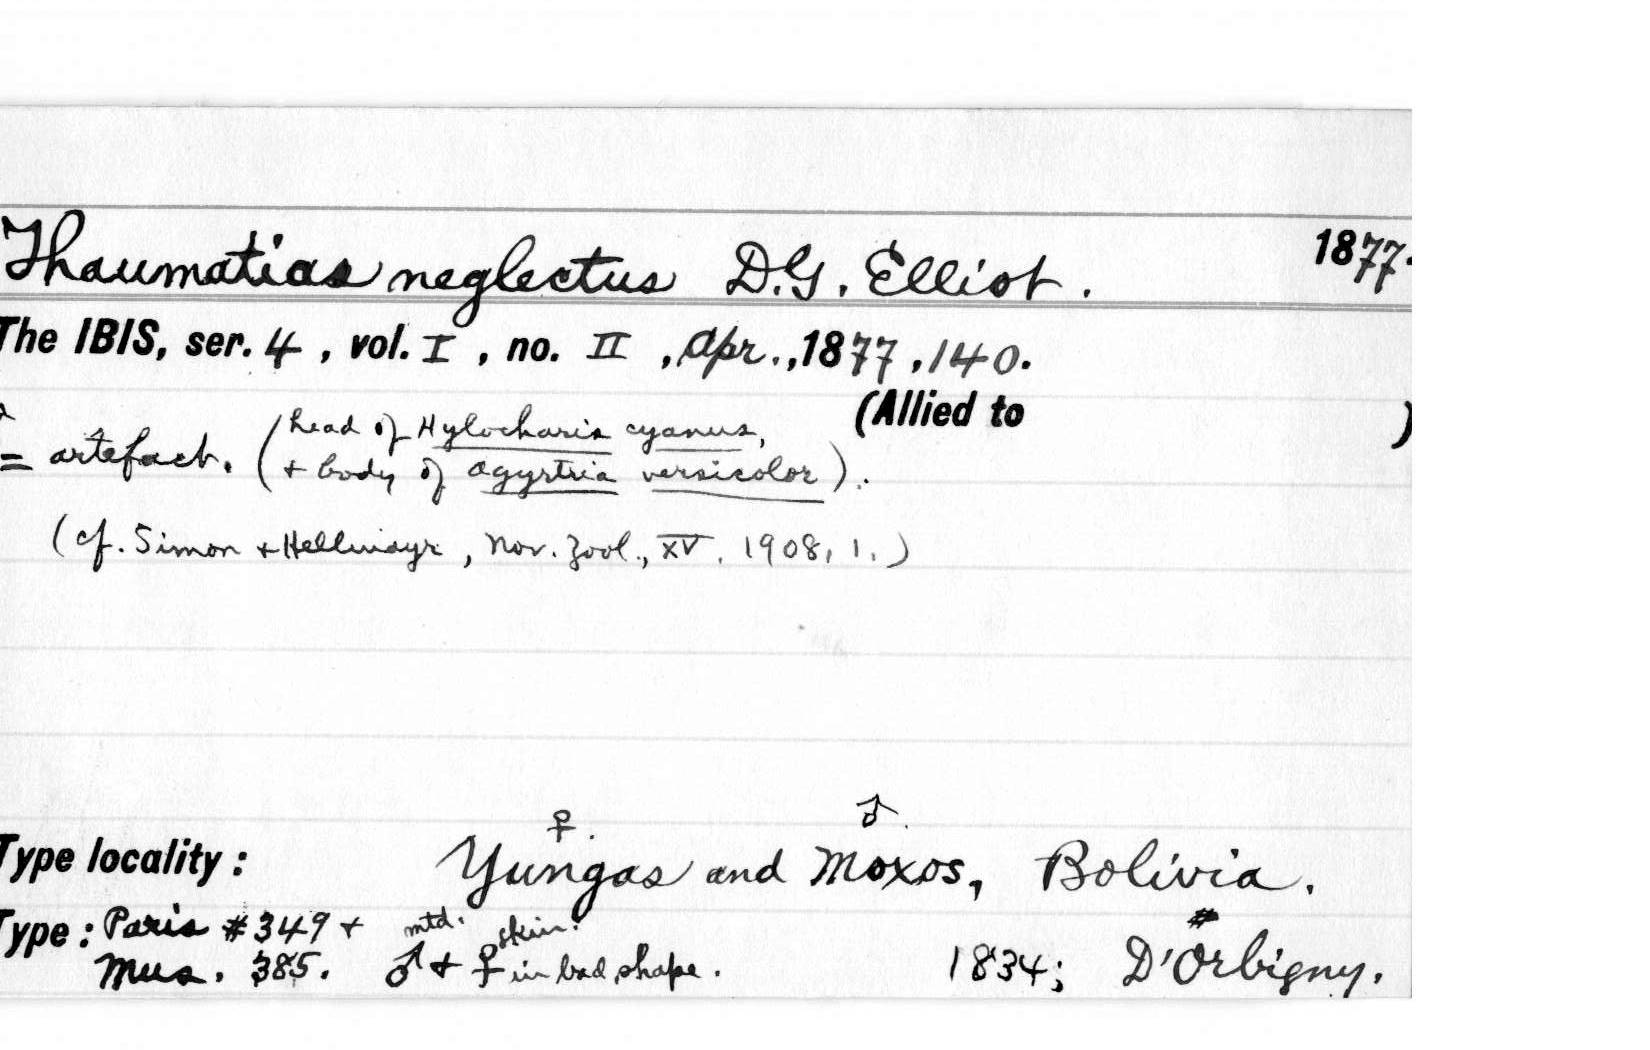 Thaumatias neglectus D.G. Elliot. 1877.
The IBIS, ser. 4, vol. I, no. II, Apr., 1877, 140.
(Allied to )
= artefact. (head of Hylocharis cyanus,
+ body of Agyrtria versicolor).
(cf. Simon + Hellmayr, Nov. Zool., XV, 1908, 1.)
♀. ♂.
Type locality: Yungas and Moxos, Bolivia.
Type: Paris #349 + mtd. skin. #
Mus. 385. ♂ + ♀ in bad shape. 1834; D'Orbigny.